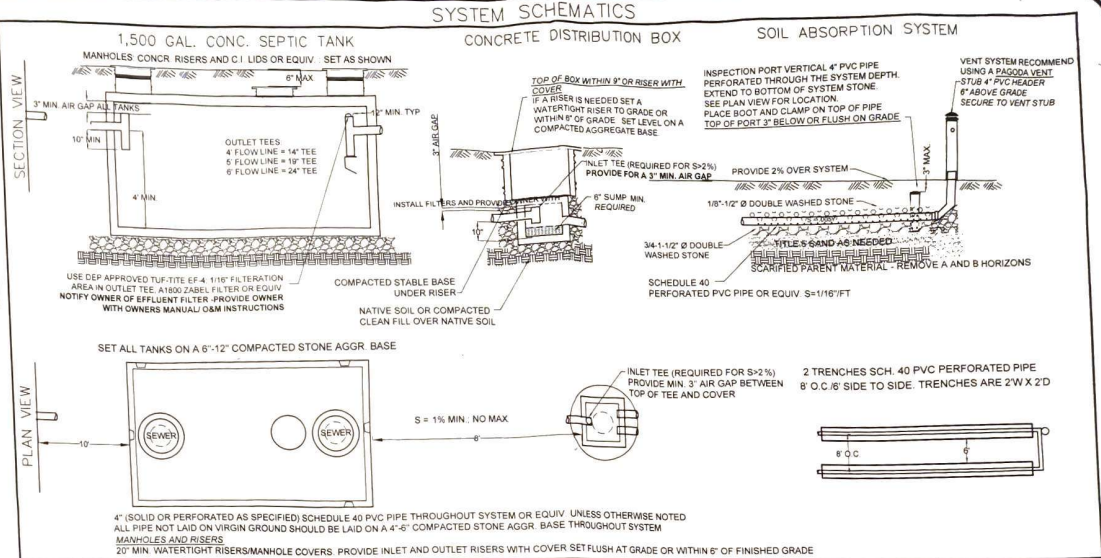 SYSTEM SCHEMATICS
SECTION VIEW
1,500 GAL. CONC. SEPTIC TANK
MANHOLES: CONCR. RISERS AND C.I. LIDS OR EQUIV.: SET AS SHOWN
6" MAX
3" MIN. AIR GAP ALL TANKS
12" MIN. TYP
10" MIN
OUTLET TEES
4' FLOW LINE = 14" TEE
5' FLOW LINE = 19" TEE
6' FLOW LINE = 24" TEE
4' MIN.
USE DEP APPROVED TUF-TITE EF-4: 1/16" FILTERATION
AREA IN OUTLET TEE, A1800 ZABEL FILTER OR EQUIV
NOTIFY OWNER OF EFFLUENT FILTER -PROVIDE OWNER
WITH OWNERS MANUAL/ O&M INSTRUCTIONS
CONCRETE DISTRIBUTION BOX
TOP OF BOX WITHIN 9" OR RISER WITH
COVER
IF A RISER IS NEEDED SET A
WATERTIGHT RISER TO GRADE OR
WITHIN 6" OF GRADE. SET LEVEL ON A
COMPACTED AGGREGATE BASE.
3" AIR GAP
INLET TEE (REQUIRED FOR S>2%)
PROVIDE FOR A 3" MIN. AIR GAP
INSTALL FILTERS AND PROVIDE OWNER WITH
6" SUMP MIN.
REQUIRED
10"
COMPACTED STABLE BASE
UNDER RISER
NATIVE SOIL OR COMPACTED
CLEAN FILL OVER NATIVE SOIL
SOIL ABSORPTION SYSTEM
INSPECTION PORT VERTICAL 4" PVC PIPE
PERFORATED THROUGH THE SYSTEM DEPTH.
EXTEND TO BOTTOM OF SYSTEM STONE.
SEE PLAN VIEW FOR LOCATION.
PLACE BOOT AND CLAMP ON TOP OF PIPE
TOP OF PORT 3" BELOW OR FLUSH ON GRADE
VENT SYSTEM RECOMMEND
USING A PAGODA VENT
STUB 4" PVC HEADER
6" ABOVE GRADE
SECURE TO VENT STUB
PROVIDE 2% OVER SYSTEM
3" MAX.
1/8"-1/2" Ø DOUBLE WASHED STONE
3/4-1-1/2" Ø DOUBLE
WASHED STONE
TITLE 5 SAND AS NEEDED
SCARIFIED PARENT MATERIAL - REMOVE A AND B HORIZONS
SCHEDULE 40
PERFORATED PVC PIPE OR EQUIV. S=1/16"/FT
PLAN VIEW
SET ALL TANKS ON A 6"-12" COMPACTED STONE AGGR. BASE
10'
SEWER
SEWER
S = 1% MIN.: NO MAX
6'
INLET TEE (REQUIRED FOR S>2%)
PROVIDE MIN. 3" AIR GAP BETWEEN
TOP OF TEE AND COVER
2 TRENCHES SCH. 40 PVC PERFORATED PIPE
8' O.C./6' SIDE TO SIDE. TRENCHES ARE 2'W X 2'D
8' O.C
6'
4" (SOLID OR PERFORATED AS SPECIFIED) SCHEDULE 40 PVC PIPE THROUGHOUT SYSTEM OR EQUIV UNLESS OTHERWISE NOTED
ALL PIPE NOT LAID ON VIRGIN GROUND SHOULD BE LAID ON A 4"-6" COMPACTED STONE AGGR. BASE THROUGHOUT SYSTEM
MANHOLES AND RISERS
20" MIN. WATERTIGHT RISERS/MANHOLE COVERS. PROVIDE INLET AND OUTLET RISERS WITH COVER SET FLUSH AT GRADE OR WITHIN 6" OF FINISHED GRADE